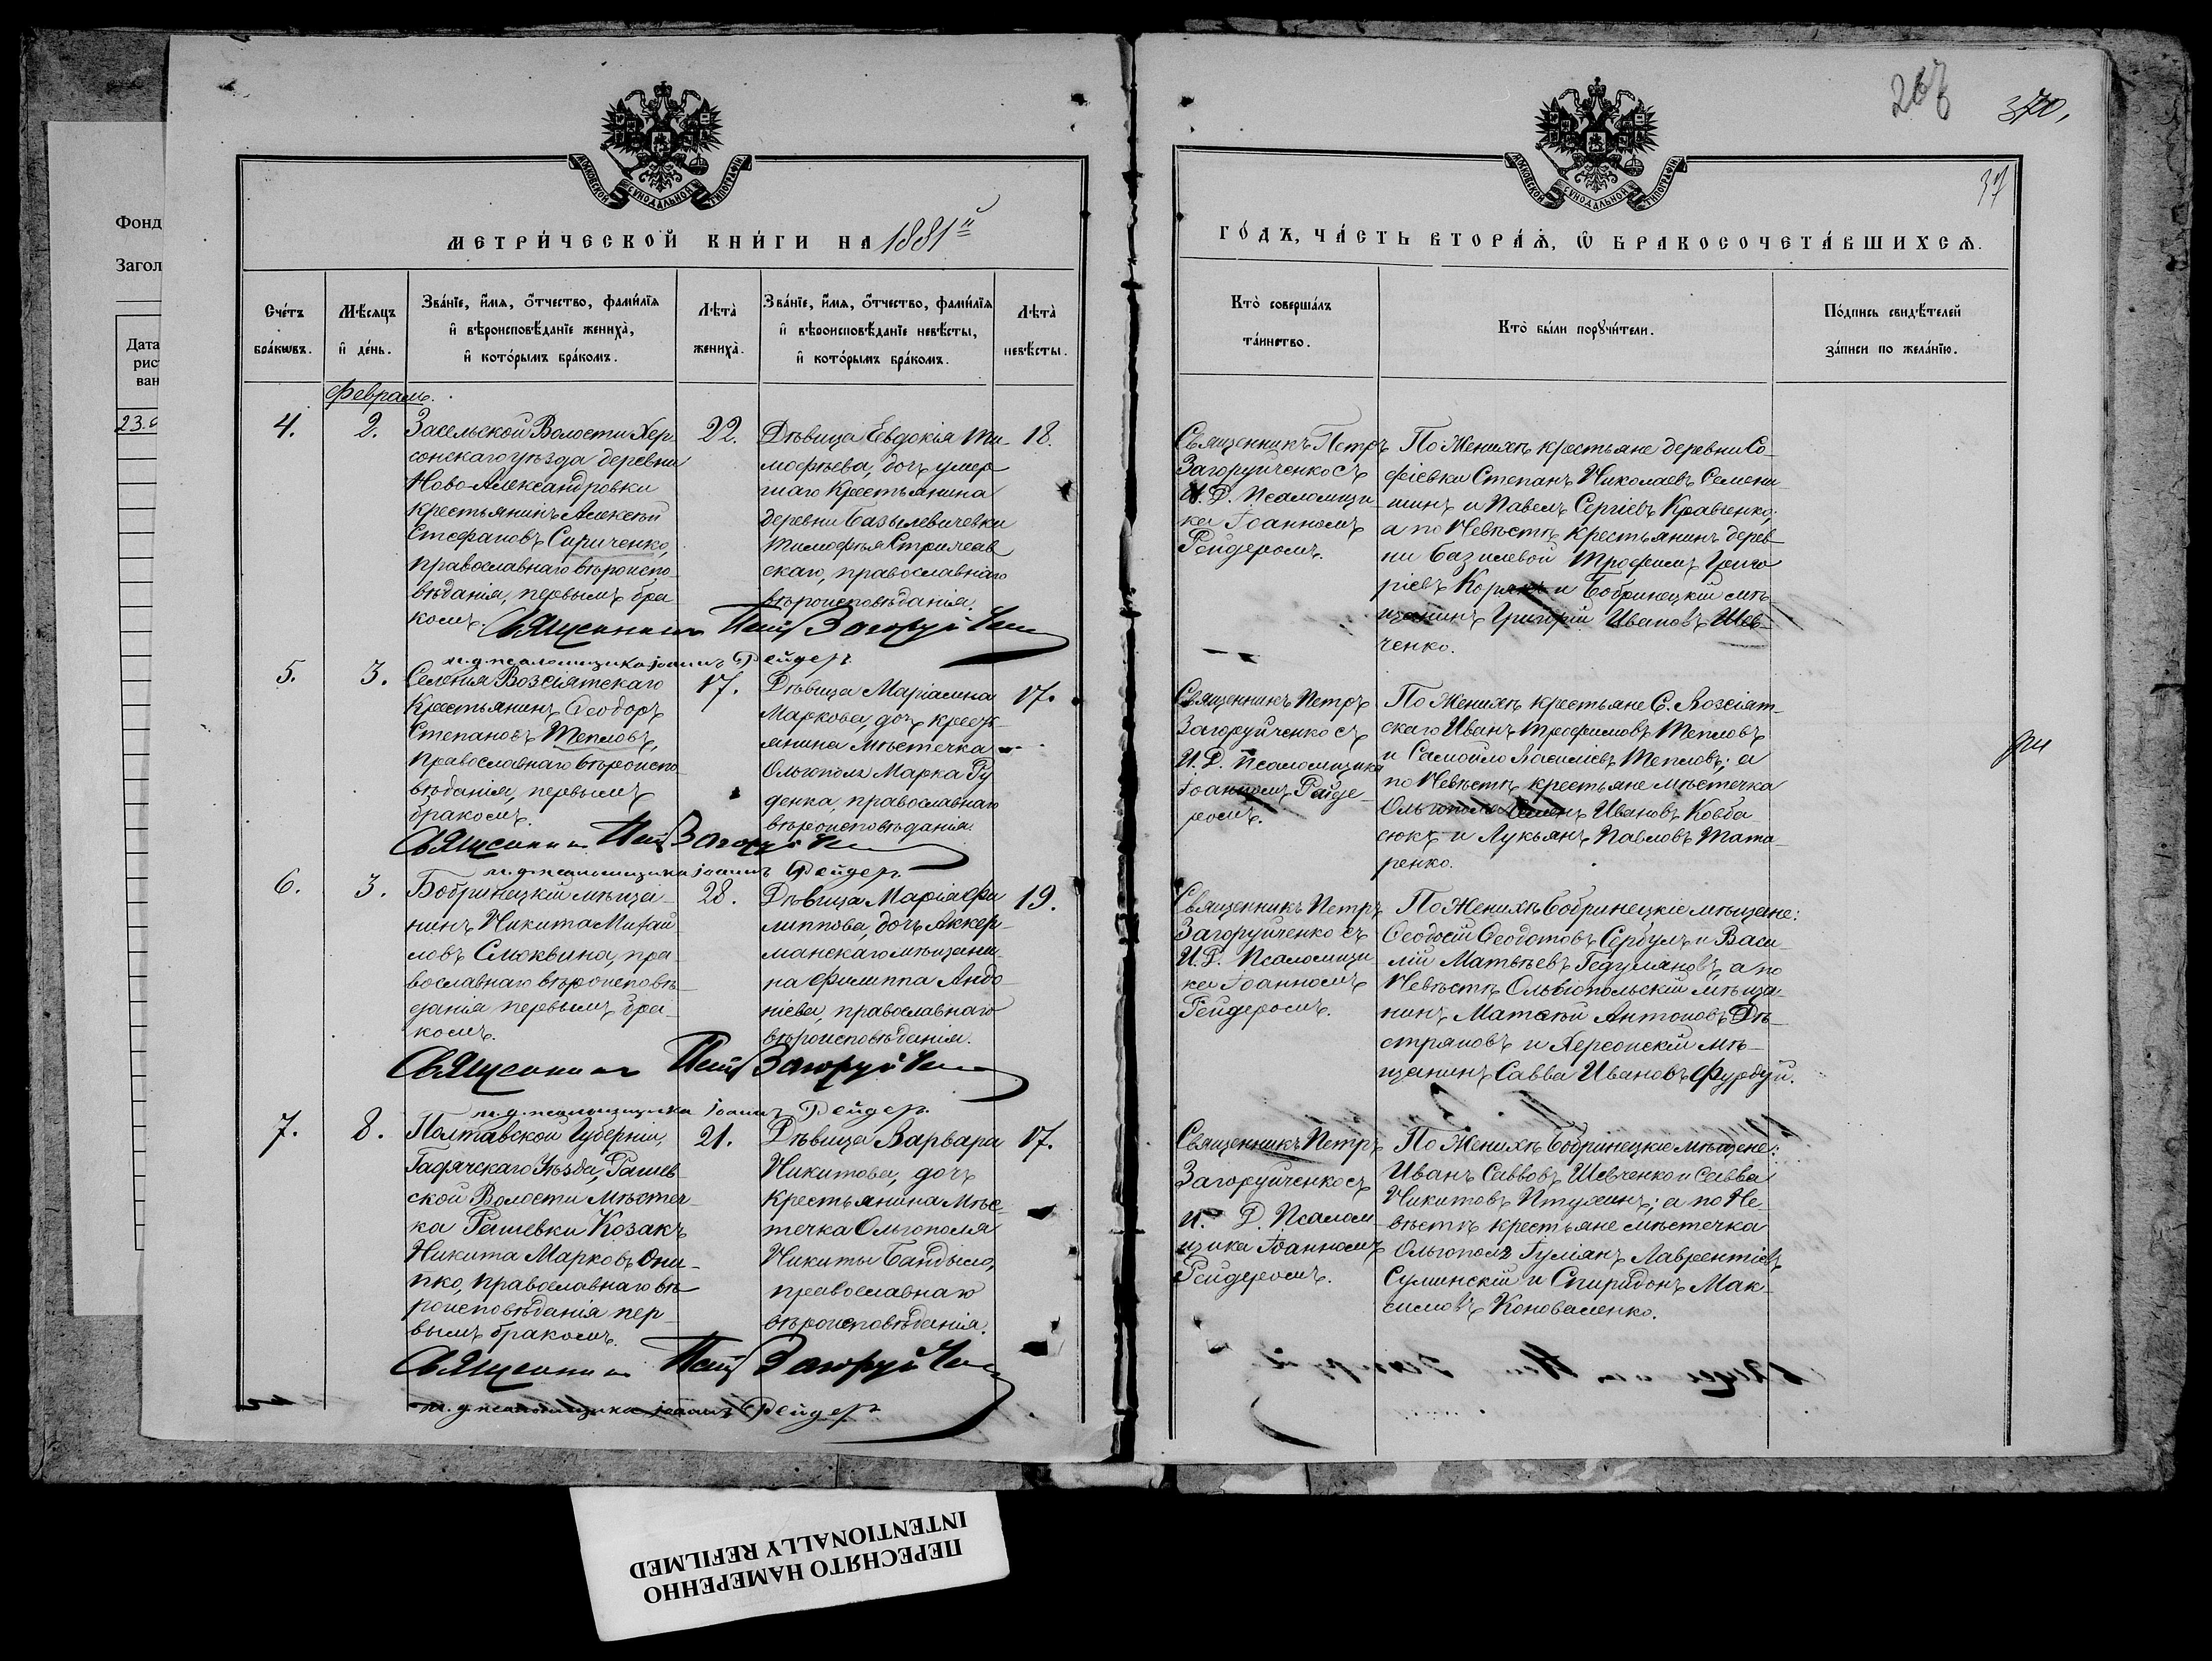 Фонд
Загол
Дата
рис
ван
23.0
МОСКОВСКОЙ СѴНОДАЛЬНОЙ ТИПОГРАФІИ
МЕТРИ́ЧЕСКОЙ КНИ́ГИ НА 1881й
Сче́тъ бра́кѡвъ.
Мѣ́сяцъ и҆ де́нь.
Зва́нїе, и҆́мя, ѻ҆́тчество, фами́лїя и҆ вѣроисповѣ́данїе жениха̀, и҆ кото́рымъ бра́комъ.
Лѣта̀ жениха̀.
Зва́нїе, и҆́мя, ѻ҆́тчество, фами́лїя и҆ вѣроисповѣ́данїе невѣ́сты, и҆ кото́рымъ бра́комъ.
Лѣта̀ невѣ́сты.
Февраль.
4.
2.
Засельской Волости Хер
сонскаго уѣзда деревни
Ново-Александровки
крестьянинъ Алексѣй
Стефановъ Сириченко,
православнаго вѣроиспо-
вѣданія, первымъ бра
комъ.
22.
Дѣвица Евдокія Ти-
мофѣева, дочь умер
шаго Крестьянина
деревни Базылевичевки
Тимофѣя
скаго, православнаго
вѣроисповѣданія.
18.
Священникъ Петръ Загоруйченко
и.д. псаломщика Іоаннъ Рейдеръ
5.
3.
Селенія Возсіятскаго
Крестьянинъ Ѳеодоръ
Степановъ Тепловъ,
православнаго вѣроиспо-
вѣданія, первымъ
бракомъ.
17.
Дѣвица Маріамна
Маркова, дочь крест
янина мѣстечка
Ольгополя Марка Гу
денка, православнаго
вѣроисповѣданія.
17.
Священникъ Петръ Загоруйченко
и.д. псаломщика Іоаннъ Рейдеръ
6.
3.
Бобринецкій мѣща-
нинъ Никита Михаи
ловъ Смоквина, пра-
вославнаго вѣроисповѣ
данія первымъ бра-
комъ.
28.
Дѣвица Марія Фи
липпова, дочь Аккер-
манскаго мѣщани-
на Филиппа Андо
ніева, православнаго
вѣроисповѣданія.
19.
Священникъ Петръ Загоруйченко
и.д. псаломщика Іоаннъ Рейдеръ
7.
8.
Полтавской Губерніи,
Гадячскаго Уѣзда, Рашев
ской Волости Мѣстеч
ка Рашевки Козакъ
Никита Марковъ Они-
пко, православнаго вѣ
роисповѣданія пер-
вымъ бракомъ.
21.
Дѣвица Варвара
Никитова, дочь
крестьянина Мѣс-
течка Ольгополя
Никиты Бандыло,
православнаго
вѣроисповѣданія.
17.
Священникъ Петръ Загоруйченко
и.д. псаломщика Іоаннъ Рейдеръ
267
370,
37
МОСКОВСКОЙ СѴНОДАЛЬНОЙ ТИПОГРАФІИ
ГО́ДЪ, ЧА́СТЬ ВТОРА́Я, Ѽ БРАКОСОЧЕТА́ВШИХСЯ.
Кто̀ соверша́лъ та́инство.
Кто̀ бы́ли порꙋчи́тели.
По́дпись свидѣ́телей за́писи по жела́нїю.
Священникъ Петръ
Загоруйченко съ
И. Д. Псаломщи-
ка Іоанномъ
Рейдеромъ.
По Женихѣ крестьяне деревни Со-
фіевки Степанъ Николаевъ Семени
шинъ и Павелъ Сергіевъ Кравченко;
а по Невѣстѣ крестьянинъ дерев-
ни Базилевой Трофимъ Григо
ріевъ Корякъ и Бобринецкій мѣ-
щанинъ Григорій Ивановъ Шев-
ченко.
Священникъ Петръ
Загоруйченко съ
И. Д. Псаломщика
Іоанномъ Рейде-
ромъ.
По Женихѣ крестьяне С. Возсіят-
скаго Иванъ Трофимовъ Тепловъ
и Самойло Василіевъ Тепловъ; а
по Невѣстѣ крестьяне мѣстечка
Ольгополя Ивановъ Ковба-
сюкъ и Лукьянъ Павловъ Тата-
ренко.
Священникъ Петръ
Загоруйченко съ
И. Д. Псаломщи
ка Іоанномъ
Рейдеромъ.
По Женихѣ Бобринецкіе мѣщане:
Ѳеодосій Ѳеодотовъ Сербулъ и Васи-
лій Матвѣевъ Гедуляновъ, а по
Невѣстѣ Ольвіопольскій мѣща-
нинъ Матѳей Антоновъ Дѣ-
стряновъ и Херсонскій мѣ-
щанинъ Савва Ивановъ Фурдуй.
Священникъ Петръ
Загоруйченко съ
И. Д. Псалом-
щика Іоанномъ
Рейдеромъ.
По Женихѣ Бобринецкіе мѣщане:
Иванъ Саввовъ Шевченко и Савва
Никитовъ Птухинъ; а по Не-
вѣстѣ крестьяне мѣстечка
Ольгополя Гуліянъ Лаврентіевъ
Сулинскій и Спиридонъ Мак-
симовъ Коноваленко.
ПЕРЕСНЯТО НАМЕРЕННО
INTENTIONALLY REFILMED